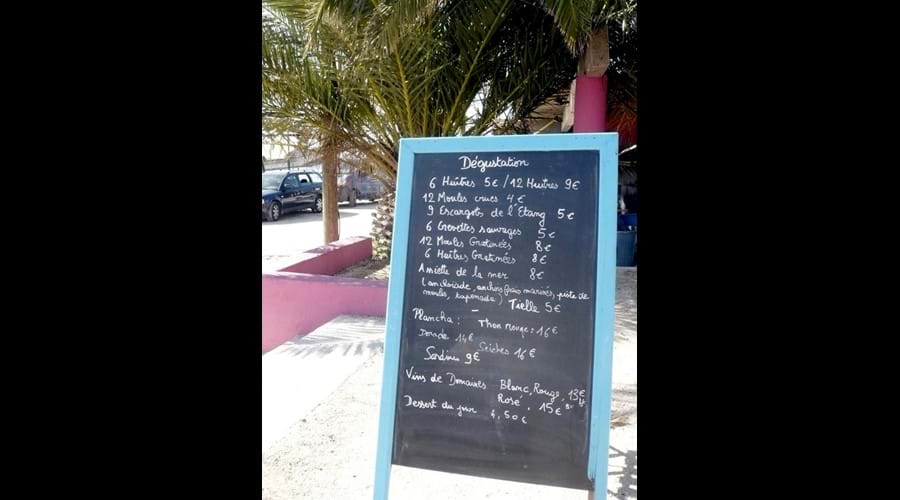 Dégustation
6 Huîtres 5€ / 12 Huîtres 9€
12 Moules crues 4€
9 Escargots de l'Etang 5€
6 Crevettes sauvages 5€
12 Moules Gratinées 8€
6 Huîtres Gratinées 8€
Assiette de la mer 8€
(anchoiade, anchois frais marinés, piste de
moules, tapenade) Tielle 5€
Plancha : Thon rouge = 16€
Dorade 14€
Seiches 16€
Sardines 9€
Vins de Domaines Blanc, Rouge, 13€
Rosé 15€
Dessert du jour 4,50€